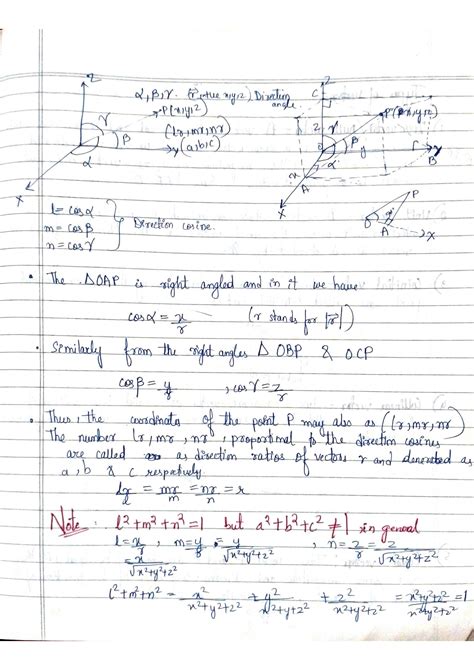 Z
α, β, γ (r, +ve x,y,z) Direction angle
P(x,y,z)
(lr, mr, nr)
(a, b, c)
γ
β
α
y
X
Z
C
P(x,y,z)
z
γ
β
α
y
r
B
x
A
X
P
α
A
X
l = cosα
m = cosβ
n = cosγ
Direction cosine.
• The ΔOAP is right angled and in it we have
cosα = x/r (r stands for |r|)
• Similarly from the right angles Δ OBP & OCP
cosβ = y/r , cosγ = z/r
• Thus, the coordinate of the point P may also as (lr, mr, nr)
The number lr, mr, nr, proportional to the direction cosines
are called as direction ratios of vectors r and denoted as
a, b & c respectively
lr/l = mr/m = nr/n = r
Note. l²+m²+n²=1 but a²+b²+c² ≠ 1 in general
l = x/r , m = y/r = y/√x²+y²+z² , n = z/r = z/√x²+y²+z²
= x/√x²+y²+z²
l²+m²+n² = x²/x²+y²+z² + y²/x²+y²+z² + z²/x²+y²+z² = x²+y²+z²/x²+y²+z² = 1